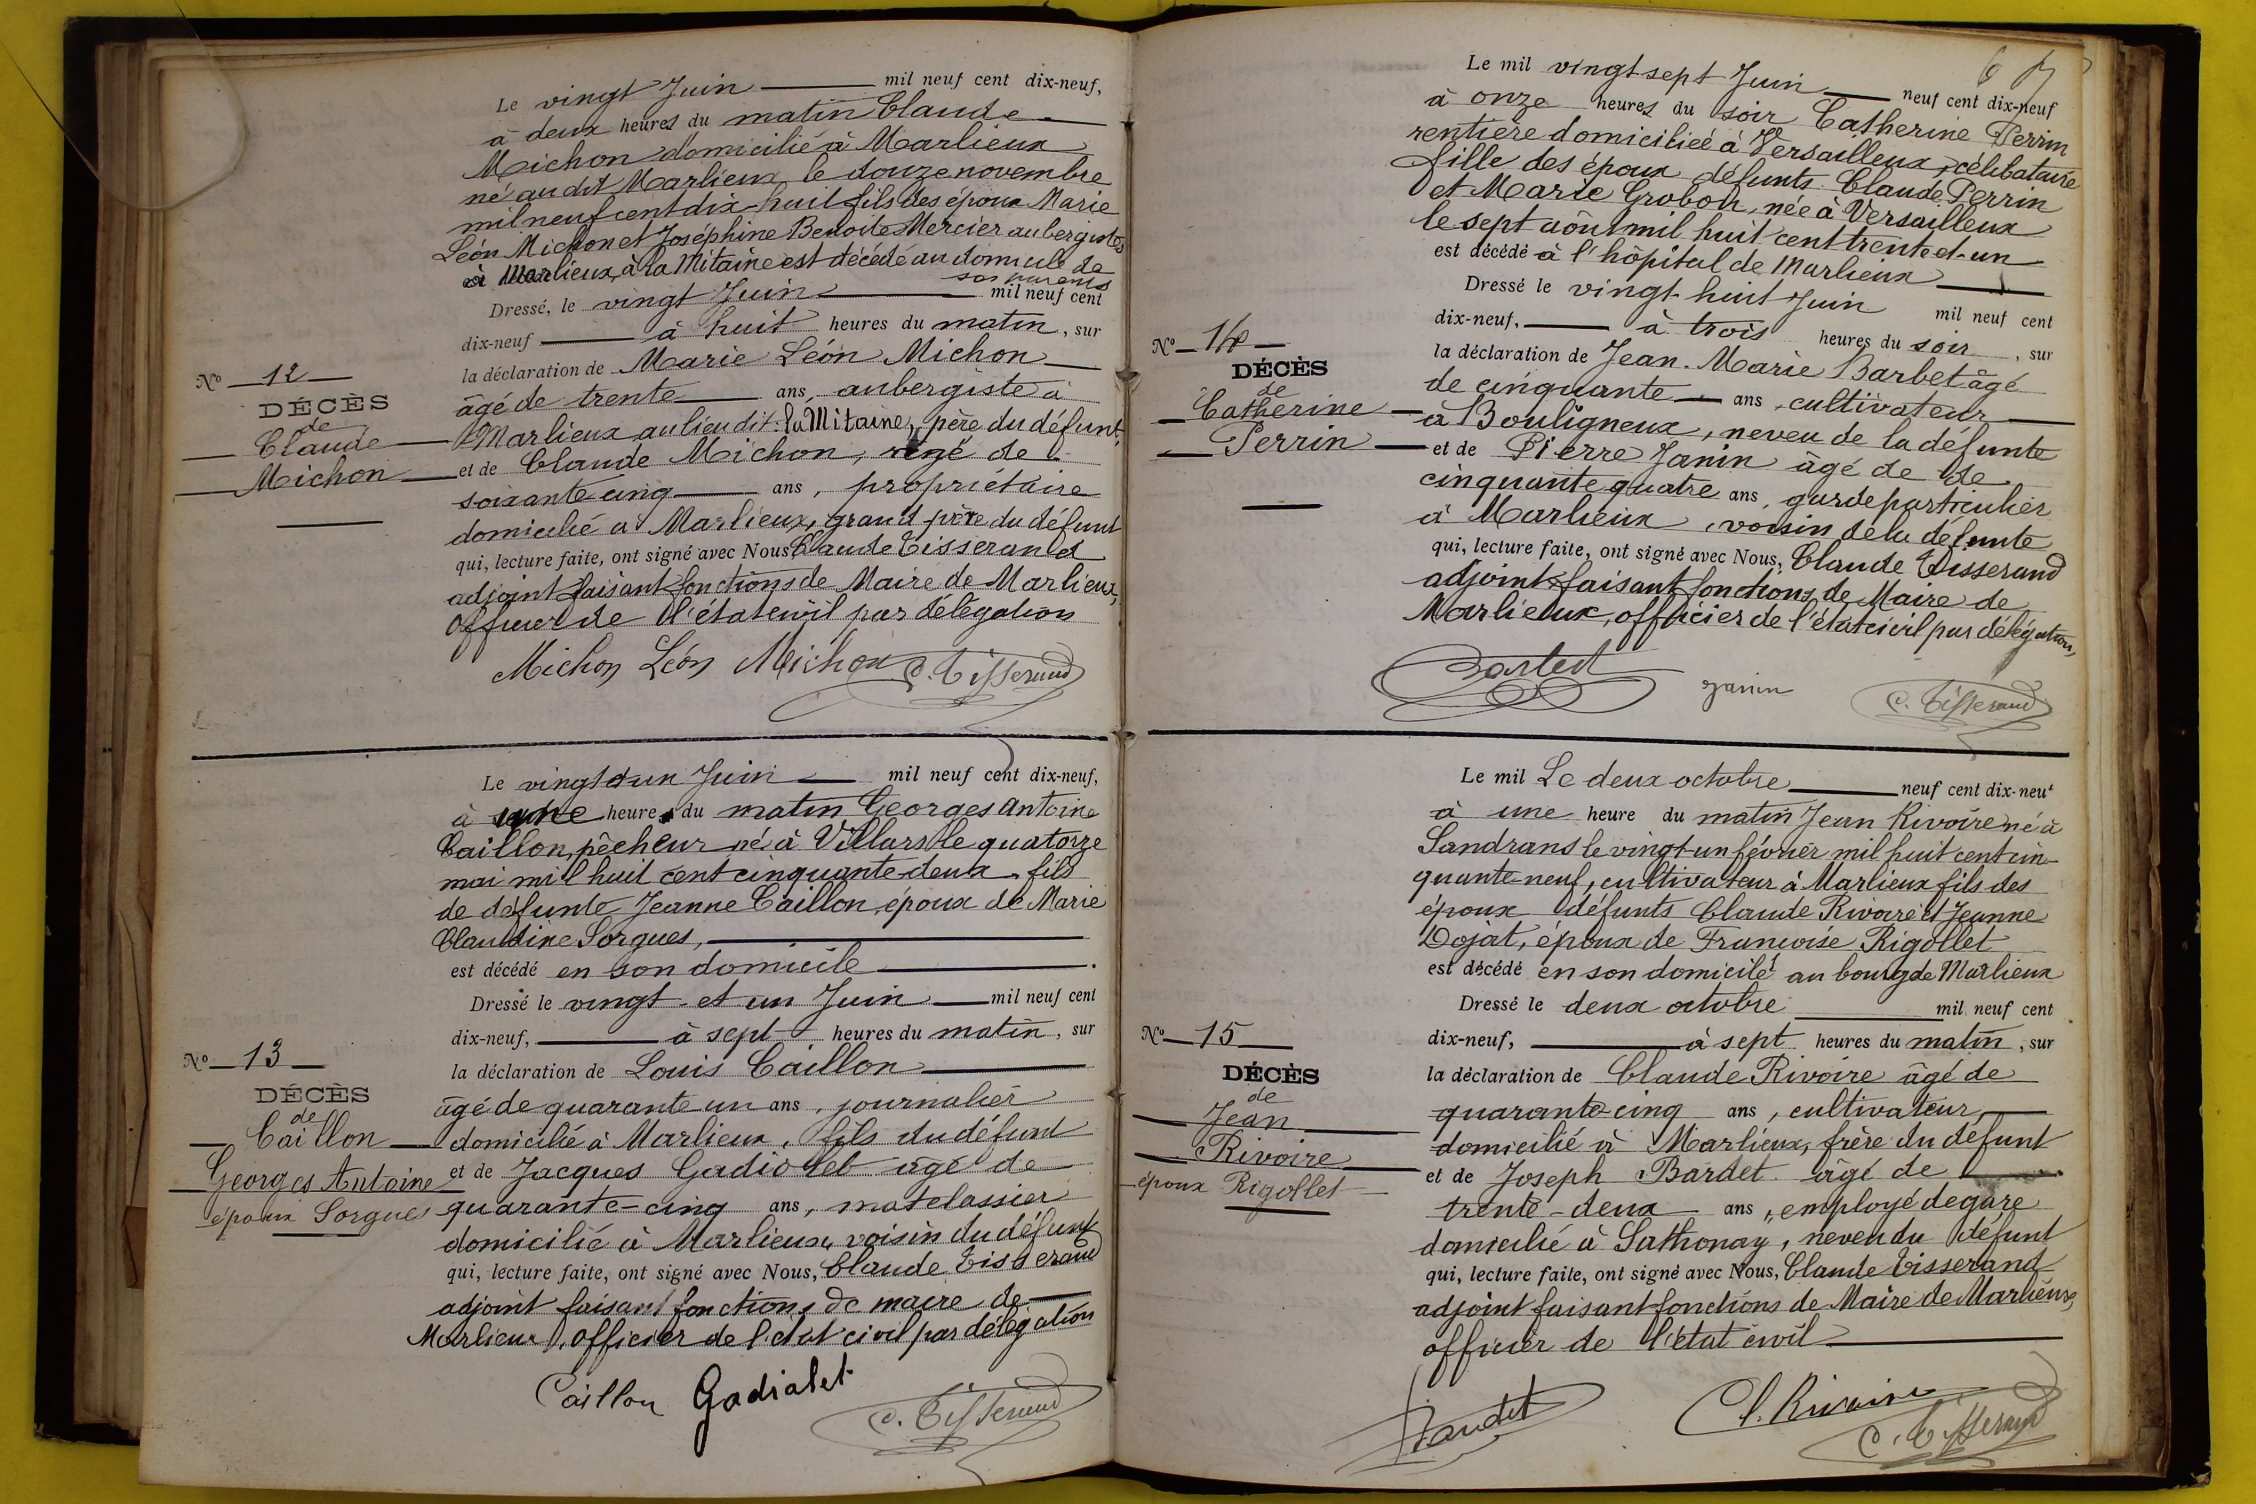 Le vingt Juin mil neuf cent dix-neuf,
à deux heures du matin Claude
Michon domicilié à Marlieux
né au dit Marlieux le douze novembre
mil neuf cent dix-huit fils des époux Marie
Léon Michon et Joséphine Benoite Mercier aubergistes
à Marlieux, à la Mitaine est décédé au domicile de
ses parents
Dressé, le vingt Juin mil neuf cent
dix-neuf à huit heures du matin, sur
la déclaration de Marie Léon Michon
âgé de trente ans, aubergiste à
Marlieux au lieu dit: la Mitaine, père du défunt,
et de Claude Michon, âgé de
soixante cinq ans, propriétaire
domicilié à Marlieux, grand père du défunt
qui, lecture faite, ont signé avec Nous Claude Tisserand
adjoint faisant fonctions de Maire de Marlieux,
officier de l'état civil par délégation
Michon Léon Michon C. Tisserand
No 12
DÉCÈS
de
Claude
Michon
Le vingt et un Juin mil neuf cent dix-neuf,
à une heure du matin Georges Antoine
Caillon, pêcheur né à Villars le quatorze
mai mil huit cent cinquante-deux, fils
de défunte Jeanne Caillon, époux de Marie
Claudine Sorgues,
est décédé en son domicile
Dressé le vingt et un Juin mil neuf cent
dix-neuf, à sept heures du matin, sur
la déclaration de Louis Caillon
âgé de quarante un ans, journalier
domicilié à Marlieux, fils du défunt
et de Jacques Gadiolet âgé de
quarante-cinq ans, matelassier
domicilié à Marlieux, voisin du défunt
qui, lecture faite, ont signé avec Nous, Claude Tisserand
adjoint faisant fonctions de maire de
Marlieux, officier de l'état civil par délégation
Caillon Gadialet C. Tisserand
No 13
DÉCÈS
de
Caillon
Georges Antoine
époux Sorgues
Le mil vingt sept Juin neuf cent dix-neuf
à onze heures du soir Catherine Perrin
rentière domiciliée à Versailleux, célibataire
fille des époux défunts Claude Perrin
et Marie Grobon, née à Versailleux
le sept août mil huit cent trente et un
est décédé à l'hôpital de Marlieux
Dressé le vingt-huit Juin mil neuf cent
dix-neuf, à trois heures du soir, sur
la déclaration de Jean-Marie Barbet âgé
de cinquante ans, cultivateur
à Bouligneux, neveu de la défunte
et de Pierre Janin âgé de de
cinquante quatre ans, garde particulier
à Marlieux, voisin de la défunte
qui, lecture faite, ont signé avec Nous, Claude Tisserand
adjoint faisant fonctions de Maire de
Marlieux, officier de l'état civil par délégation,
Barbet Janin C. Tisserand
No 14
DÉCÈS
de
Catherine
Perrin
Le mil Le deux octobre neuf cent dix-neuf
à une heure du matin Jean Rivoire né à
Sandrans le vingt-un février mil huit cent cin-
quante-neuf, cultivateur à Marlieux fils des
époux défunts Claude Rivoire et Jeanne
Dojat, époux de Françoise Rigollet
est décédé en son domicile, au bourg de Marlieux
Dressé le deux octobre mil neuf cent
dix-neuf, à sept heures du matin, sur
la déclaration de Claude Rivoire âgé de
quarante-cinq ans, cultivateur
domicilié à Marlieux, frère du défunt
et de Joseph Bardet âgé de
trente-deux ans, employé de gare
domicilié à Sathonay, neveu du défunt
qui, lecture faite, ont signé avec Nous, Claude Tisserand
adjoint faisant fonctions de Maire de Marlieux,
officier de l'état civil
Bardet Cl. Rivoire
C. Tisserand
No 15
DÉCÈS
de
Jean
Rivoire
époux Rigollet